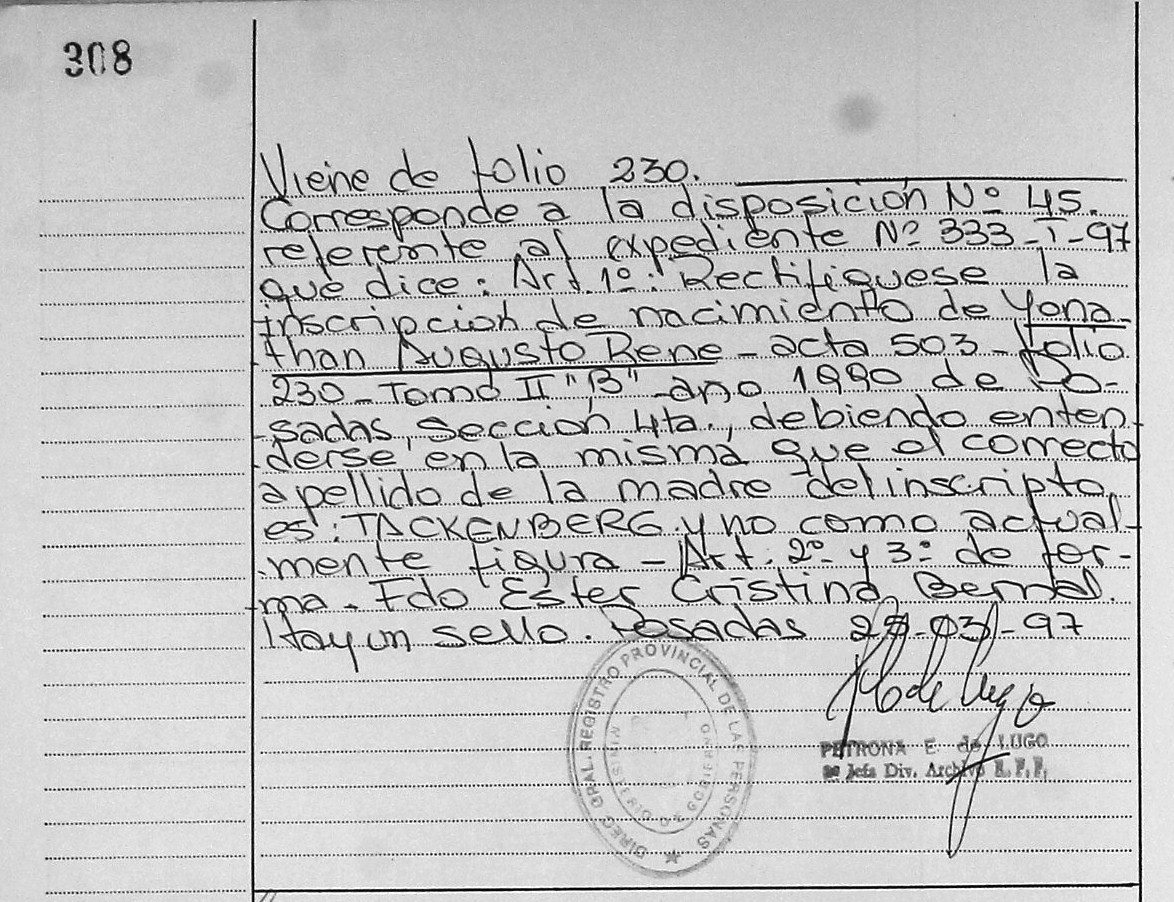 308
Viene de folio 230.
Corresponde a la disposición Nº 45.
referente al expediente Nº 333-I-97
que dice: Art. 1º: Rectifiquese la
inscripcion de nacimiento de Yona-
than Augusto Rene - acta 503 - folio
230 - Tomo II "B" - año 1990 de Po-
sadas, Sección 4ta., debiendo enten
derse en la misma que el correcto
apellido de la madre del inscripto,
es: TACKENBERG y no como actual-
mente figura - Art. 2º y 3º de for-
ma. Fdo Ester Cristina Bernal.
Hay un sello. Posadas 25-03-97
DIREC. GRAL. REGISTRO PROVINCIAL DE LAS PERSONAS
MINISTERIO DE GOBIERNO
PETRONA E. de LUGO
Jefa Div. Archivo R.P.P.